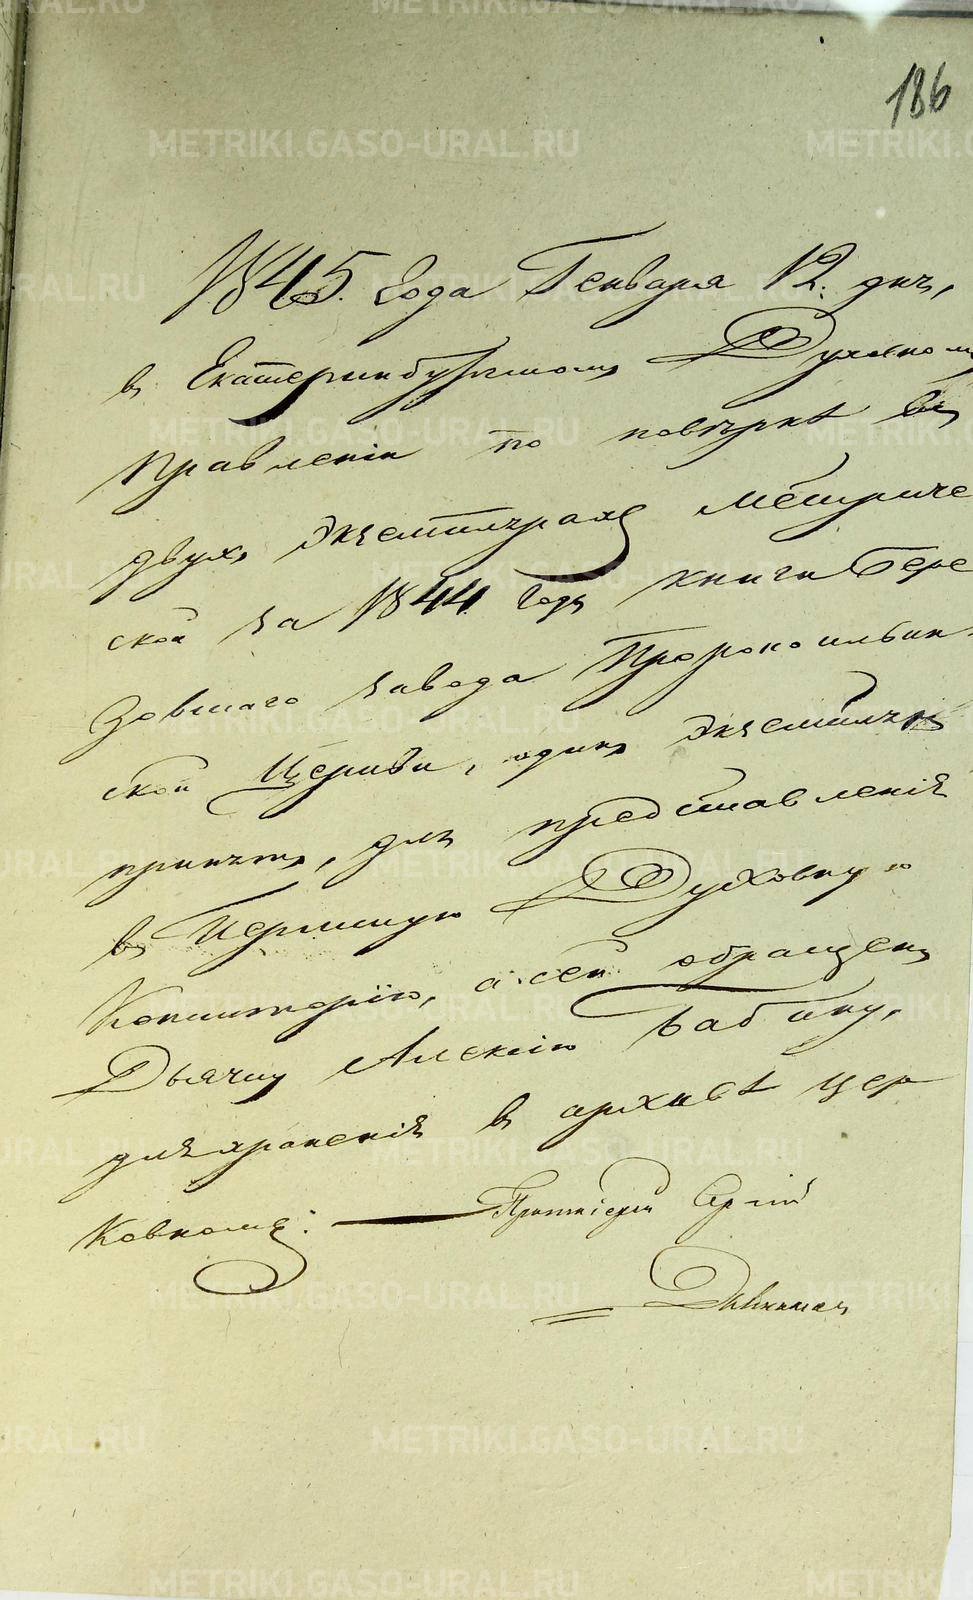 186
1845. Года Генваря 12. дня,
въ Екатеринбургскомъ Духовномъ
Правленіи по повѣркѣ въ
двухъ экземплярахъ Метриче
ской за 1844. Годъ книги Бере
зовскаго завода Пророкоильин-
ской Церкви, одинъ экземпляръ
принятъ, для представленія
въ Пермскую Духовную
Консисторію, а сей обращенъ
Дьячку Алексѣю Бабину,
для храненія въ архивѣ цер
ковномъ: Протоіерей Сергій
METRIKI.GASO-URAL.RU